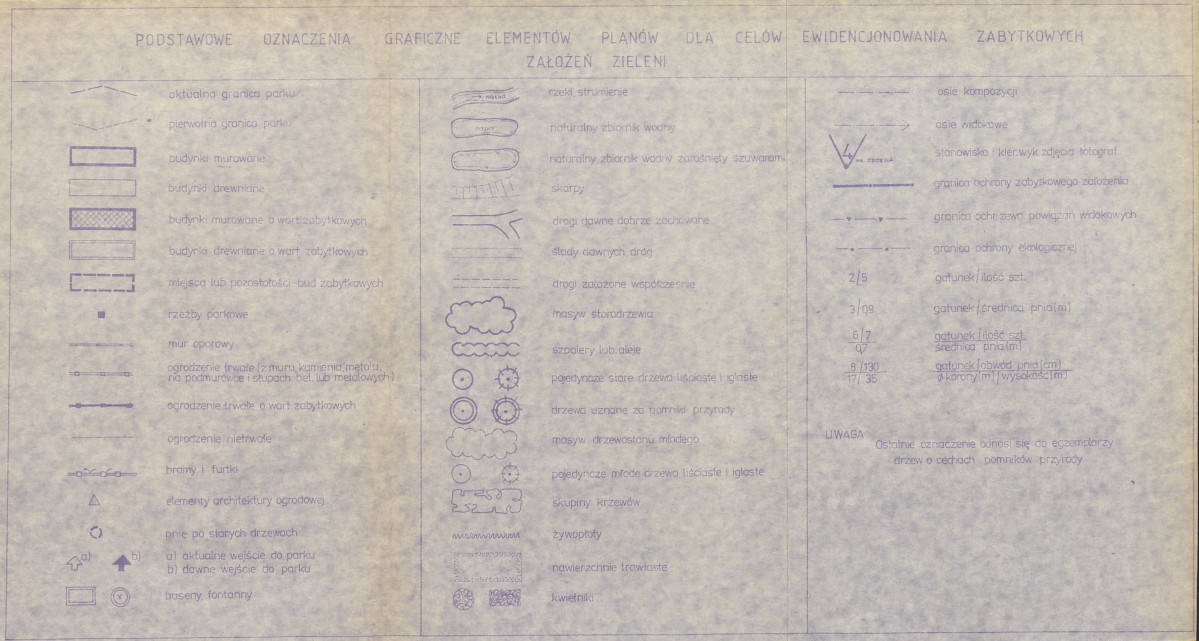 PODSTAWOWE OZNACZENIA GRAFICZNE ELEMENTÓW PLANÓW DLA CELÓW EWIDENCJONOWANIA ZABYTKOWYCH
ZAŁOŻEŃ ZIELENI
aktualna granica parku
pierwotna granica parku
budynki murowane
budynki drewniane
budynki murowane o wart. zabytkowych
budynki drewniane o wart. zabytkowych
miejsca lub pozostałości bud zabytkowych
rzeźby parkowe
mur oporowy
ogrodzenie trwałe (z muru, kamienia, metalu,
na podmurówce i słupach bet. lub metalowych)
ogrodzenie trwałe o wart zabytkowych
ogrodzenie nietrwałe
bramy i furtki
elementy architektury ogrodowej
pnie po starych drzewach
a) b) a) aktualne wejście do parku
b) dawne wejście do parku
baseny, fontanny
rzeki, strumienie
naturalny zbiornik wodny
naturalny zbiornik wodny zarośnięty szuwarami
skarpy
drogi dawne dobrze zachowane
ślady dawnych dróg
drogi założone współcześnie
masyw starodrzewia
szpalery lub aleje
pojedyncze stare drzewa liściaste i iglaste
drzewa uznane za pomniki przyrody
masyw drzewostanu młodego
pojedyncze młode drzewa liściaste i iglaste
skupiny krzewów
żywopłoty
nawierzchnie trawiaste
kwietniki
osie kompozycji
osie widokowe
4 stanowisko i kier. wyk zdjęcia fotograf.
granica ochrony zabytkowego założenia
granica ochr. zewn. powiązań widokowych
granica ochrony ekologicznej
2/5 gatunek/ilość szt.
3/0,9 gatunek/średnica pnia (m)
6/7 gatunek/ilość szt.
0,7 średnica pnia (m)
8/130 gatunek/obwód pnia (cm)
17/35 ø korony (m)/wysokość (m)
UWAGA
Ostatnie oznaczenie odnosi się do egzemplarzy
drzew o cechach pomników przyrody